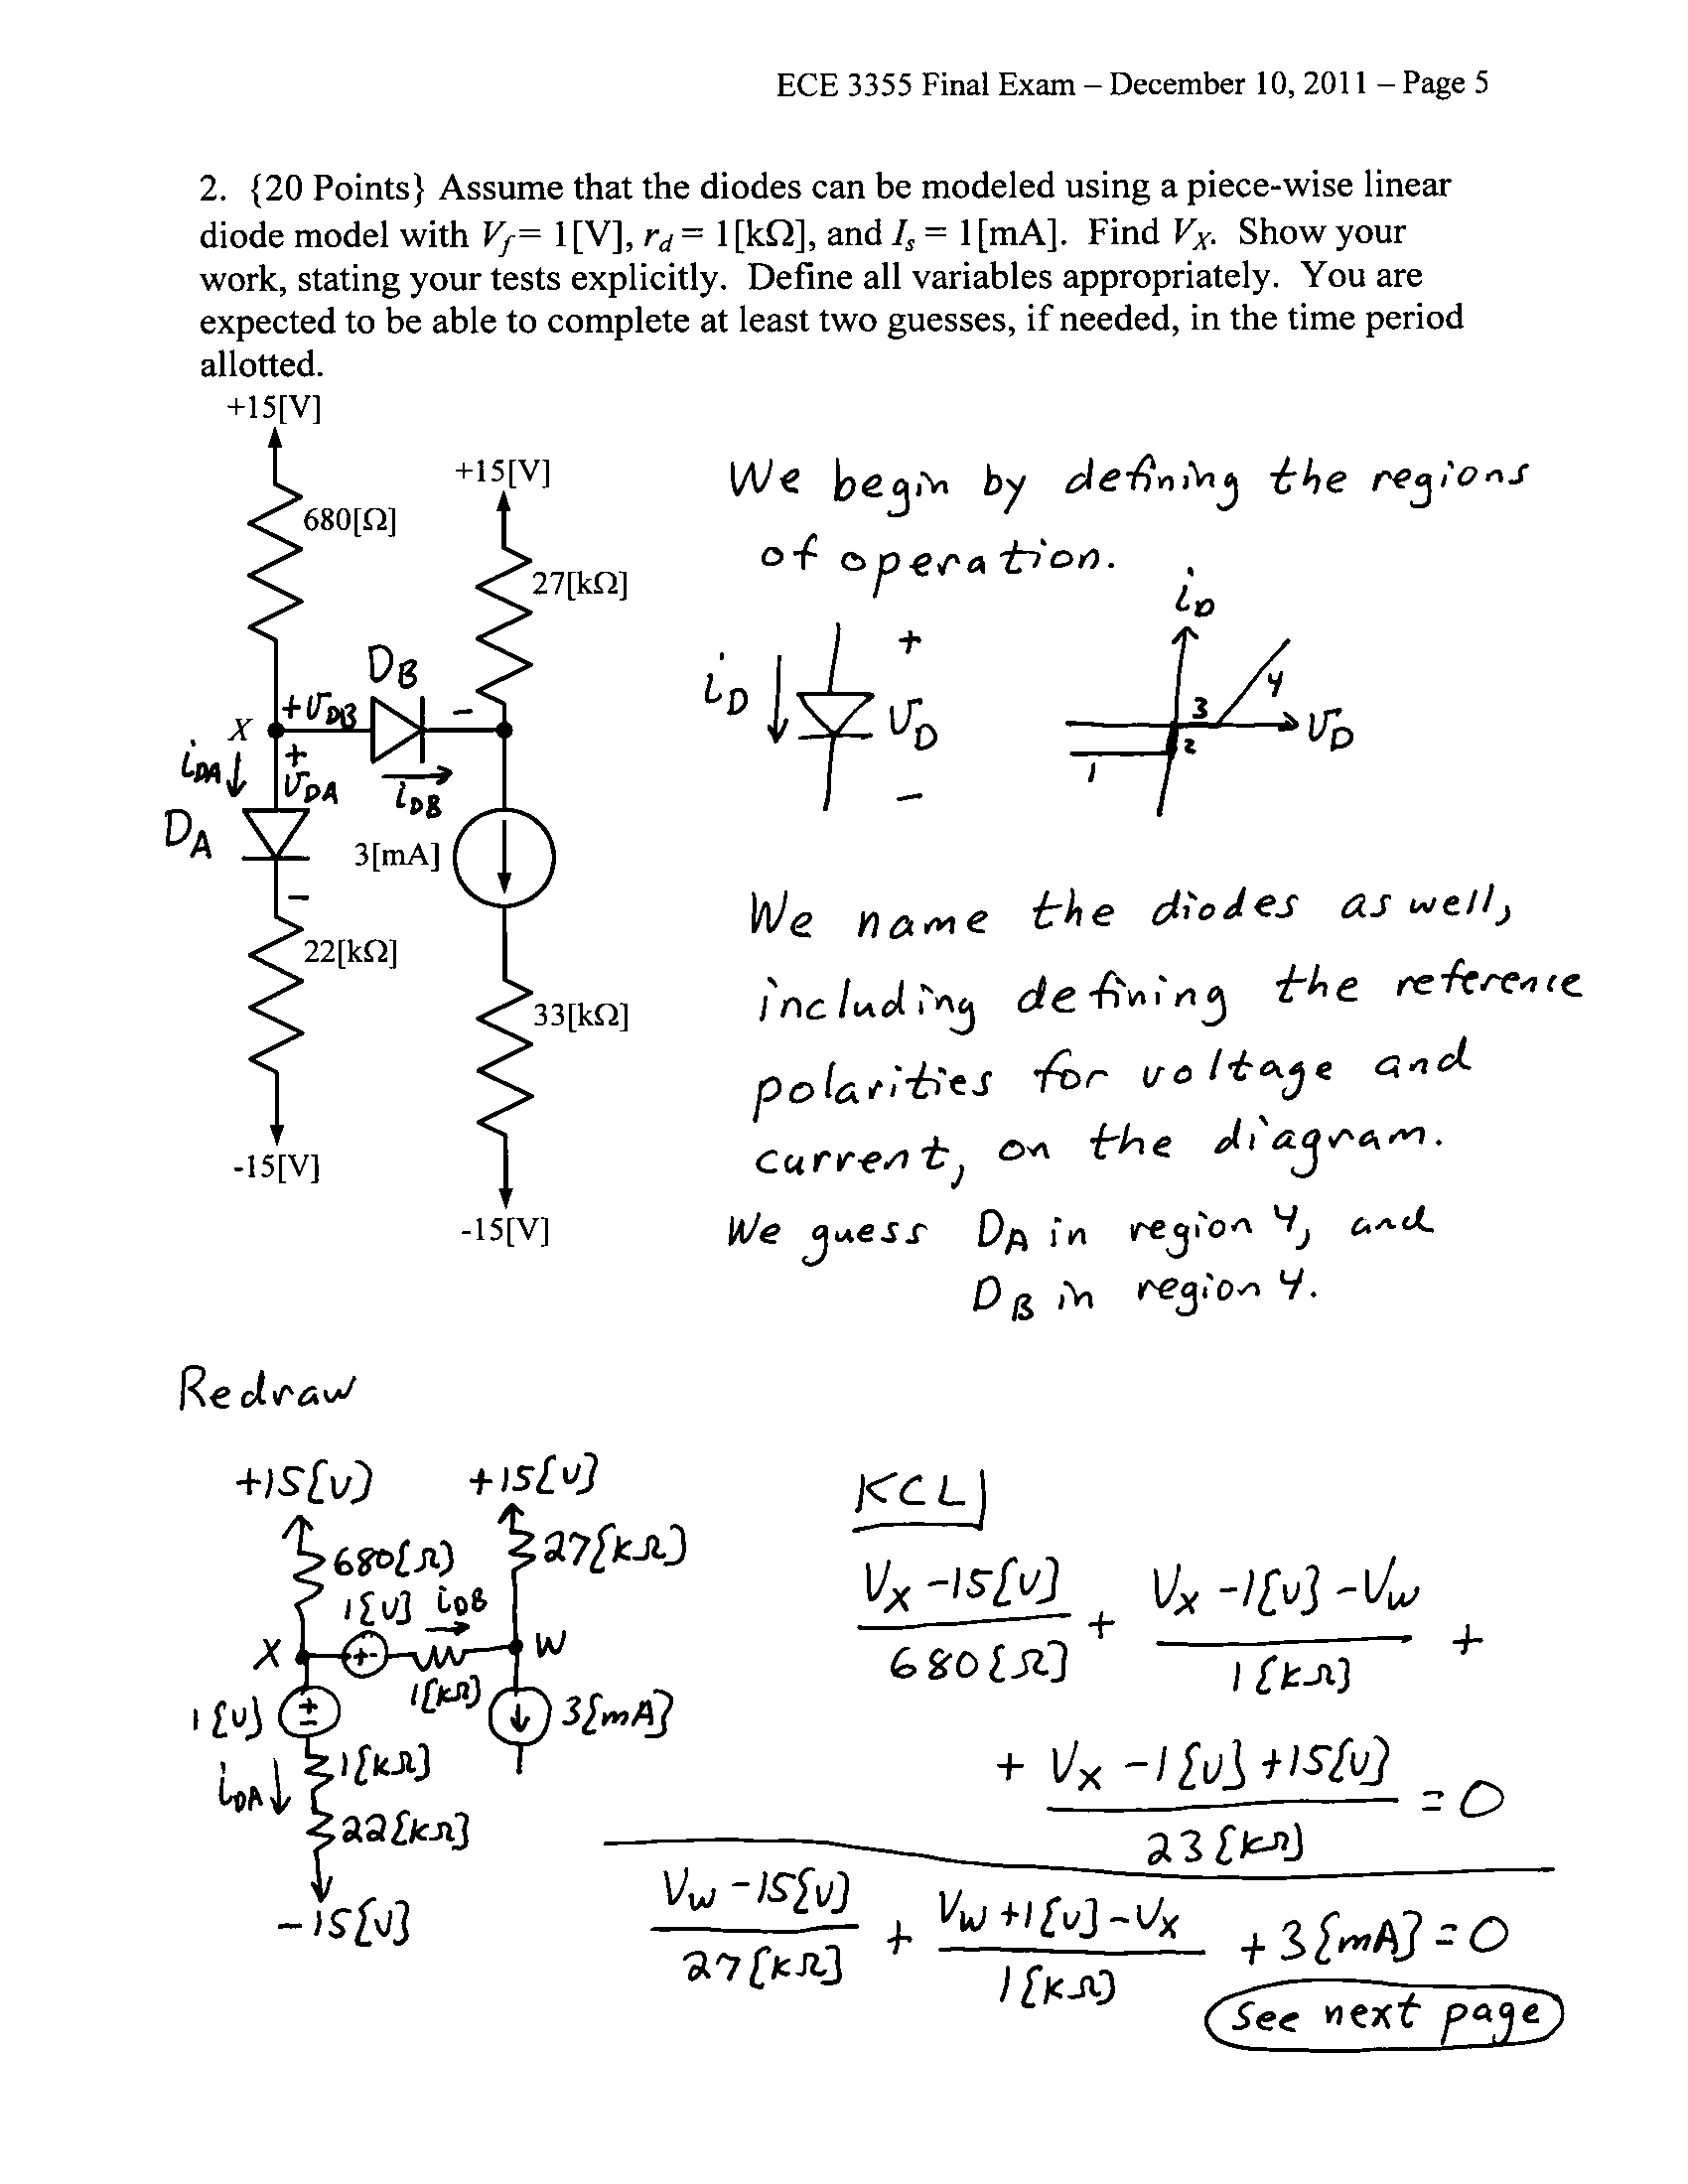 ECE 3355 Final Exam – December 10, 2011 – Page 5
2. {20 Points} Assume that the diodes can be modeled using a piece-wise linear
diode model with Vf= 1[V], rd = 1[kΩ], and Is = 1[mA]. Find VX. Show your
work, stating your tests explicitly. Define all variables appropriately. You are
expected to be able to complete at least two guesses, if needed, in the time period
allotted.
+15[V]
+15[V]
680[Ω]
27[kΩ]
DB
+ vDB -
X
iDA
+
vDA
-
iDB
DA
3[mA]
22[kΩ]
33[kΩ]
-15[V]
-15[V]
We begin by defining the regions
of operation.
iD
+
vD
-
iD
vD
1
2
3
4
We name the diodes as well,
including defining the reference
polarities for voltage and
current, on the diagram.
We guess DA in region 4, and
DB in region 4.
Redraw
+15[V]
+15[V]
680[Ω]
27[kΩ]
1[V]
iDB
X
+-
W
1[kΩ]
1[V]
+
-
3[mA]
1[kΩ]
iDA
22[kΩ]
-15[V]
KCL
VX -15[V]
680[Ω]
+
VX -1[V] -VW
1[kΩ]
+
+ VX -1[V] +15[V]
23[kΩ]
=0
VW -15[V]
27[kΩ]
+
VW +1[V] -VX
1[kΩ]
+3[mA]=0
See next page